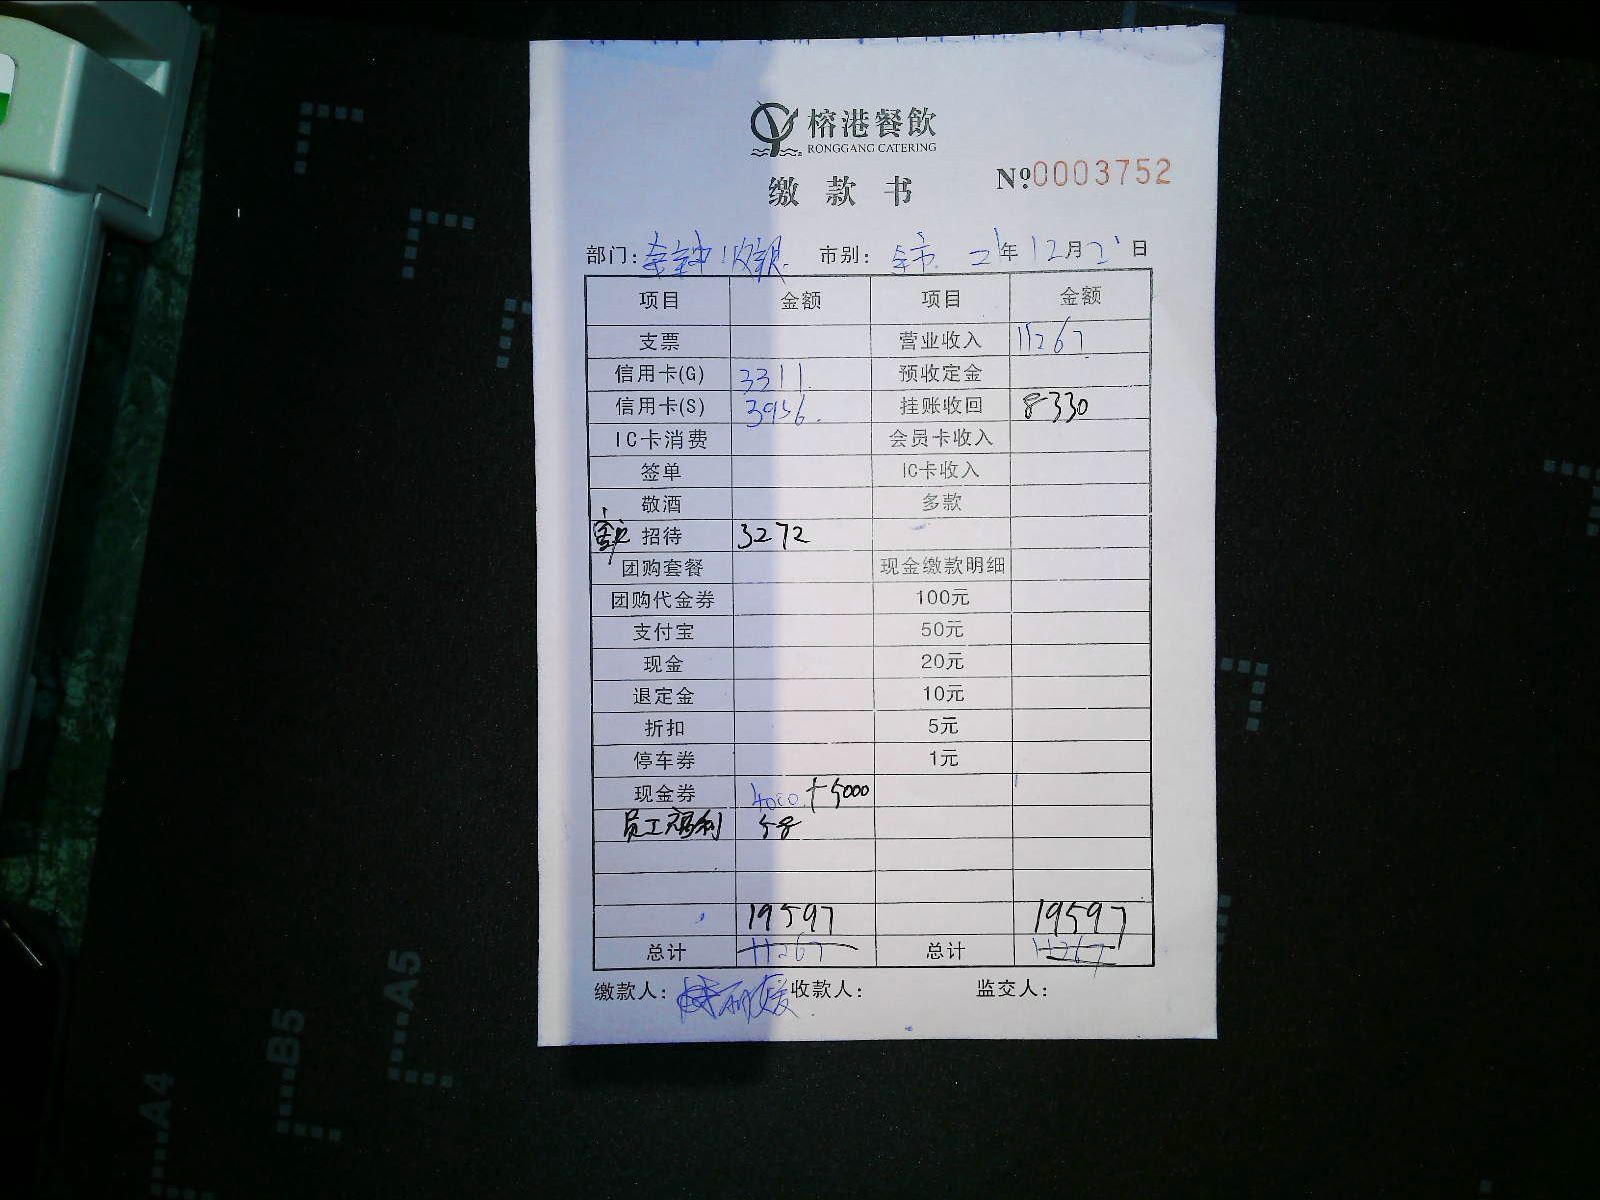 榕港餐飲
RONGGANG CATERING
缴款书 Nº0003752
部门: 收银 市别: 全市 21年12月21日
项目 金额 项目 金额
支票 营业收入 11267
信用卡(G) 3311 预收定金
信用卡(S) 3956 挂账收回 8330
IC卡消费 会员卡收入
签单 IC卡收入
敬酒 多款
招待 3272
团购套餐 现金缴款明细
团购代金券 100元
支付宝 50元
现金 20元
退定金 10元
折扣 5元
停车券 1元
现金券 4000+5000
员工福利 58
19597 19597
总计 11267 总计 11267
缴款人: 丽媛 收款人: 监交人:
A4
B5
A5